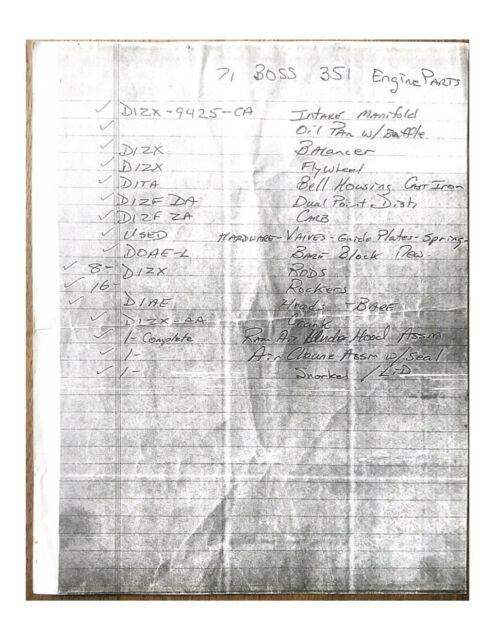 71 BOSS 351 Engine Parts
✓ D1ZX-9425-CA Intake Manifold
✓ Oil Pan w/Baffle
✓ D1ZX Balancer
✓ D1ZX Flywheel
✓ D1TA Bell Housing Cast Iron
✓ D1ZF DA Dual Point Dist.
✓ D1ZF ZA CARB
✓ USED HARDWARE-VALVES-Guide Plates-Spring-
✓ DOAE-L Bare Block New
✓ 8- D1ZX RODS
✓ 16- Rockers
✓ D1AE Heads -BARE
✓ D1ZX-AA Crank
✓ 1-Complete Ram Air Under Hood Assm
✓ 1- Air Cleaner Assm w/Seal
✓ 1- Snorkel /L.D